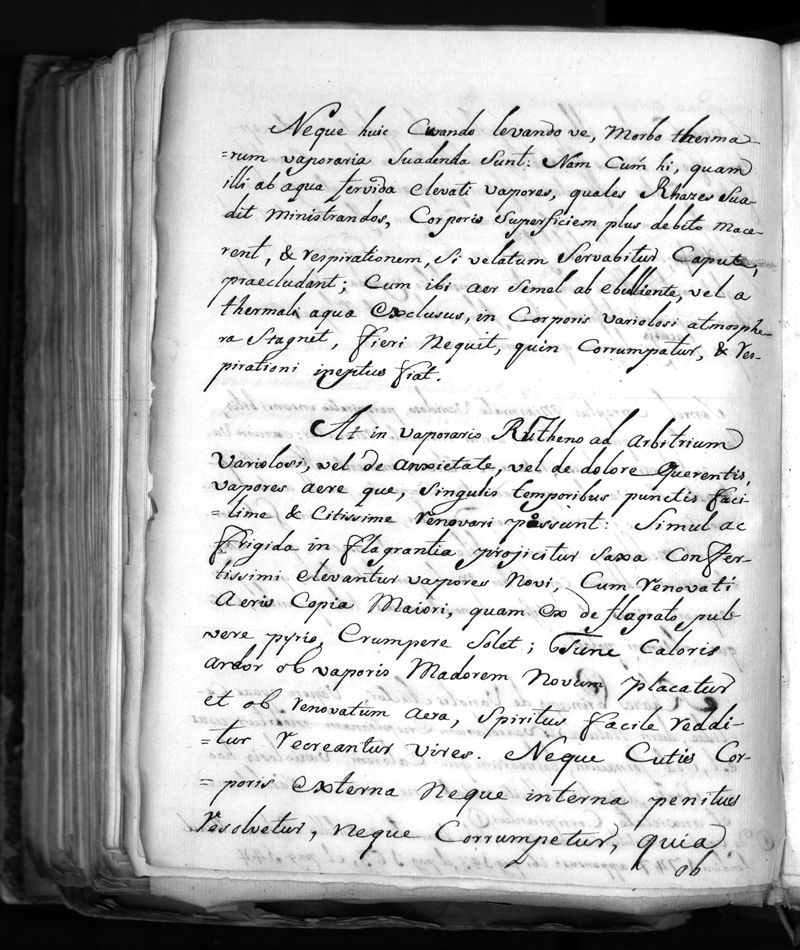 Neque huic Curando levando ve, Morbo therma
=rum vaporaria Suadenda Sunt: Nam Cum hi, quam
illi ab aqua fervida elevati vapores, quales Rhazes Sua-
dit ministrandos, Corporis Superficiem plus debito mace-
rent, & respirationem, Si velatum Servabitur Caput,
praecludant; Cum ibi aer Semel ab ebulliente, vel a
thermali aqua exclusus, in Corporis variolosi atmosphe-
ra Stagnet, fieri Nequit, quin Corrumpatur, & res-
pirationi ineptus fiat.
At in vaporario Rutheno ad arbitrium
Variolosi, vel de anxietate, vel de dolore Querentis,
vapores aere que, Singulis temporibus punctis faci-
=lime & Citissime renovari possunt: Simul ac
frigida in flagrantia projicitur Saxa Confer-
tissimi elevantur vapores Novi, Cum renovati
Aeris Copia Maiori, quam ex deflagrato pul-
vere pyrio, Erumpere Solet; Tunc Caloris
ardor ob vaporis Madorem Novum placatur
et ob renovatum aera, Spiritus facile reddi-
=tur recreantur vires. Neque Cutis Cor-
=poris externa Neque interna penitus
resolvetur, neque Corrumpetur, quia
ob